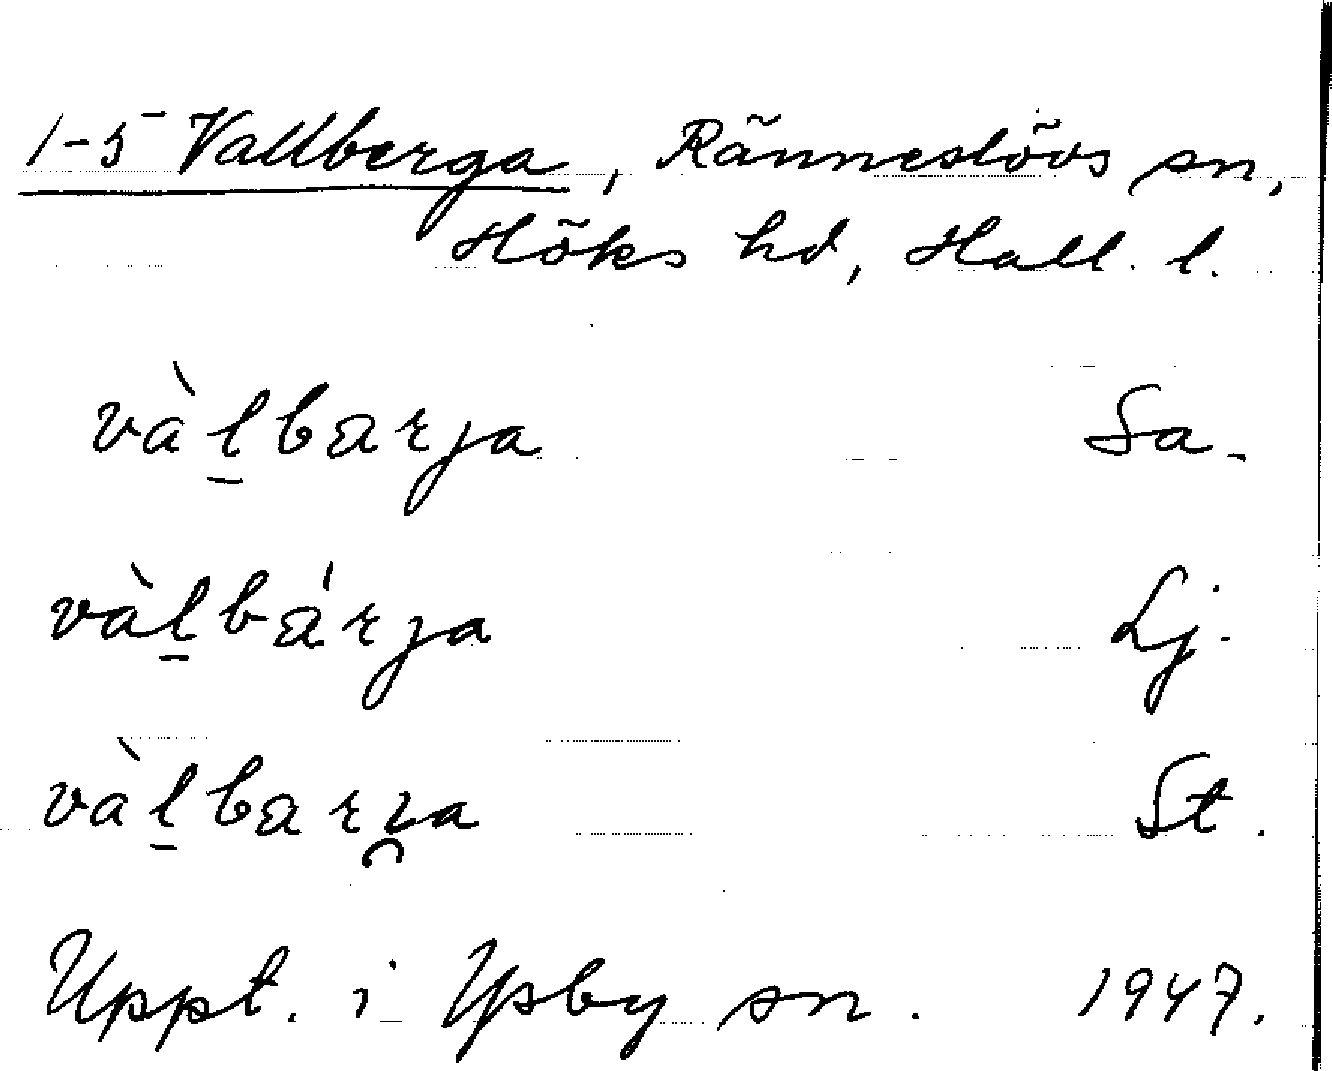 1-5 Vallberga, Ränneslövs sn,
Höks hd, Hall. l.
vàl̠barja Sa.
vàl̠bárja Lj.
vàl̠barı̯a St.
Uppt. i Ysby sn. 1947.